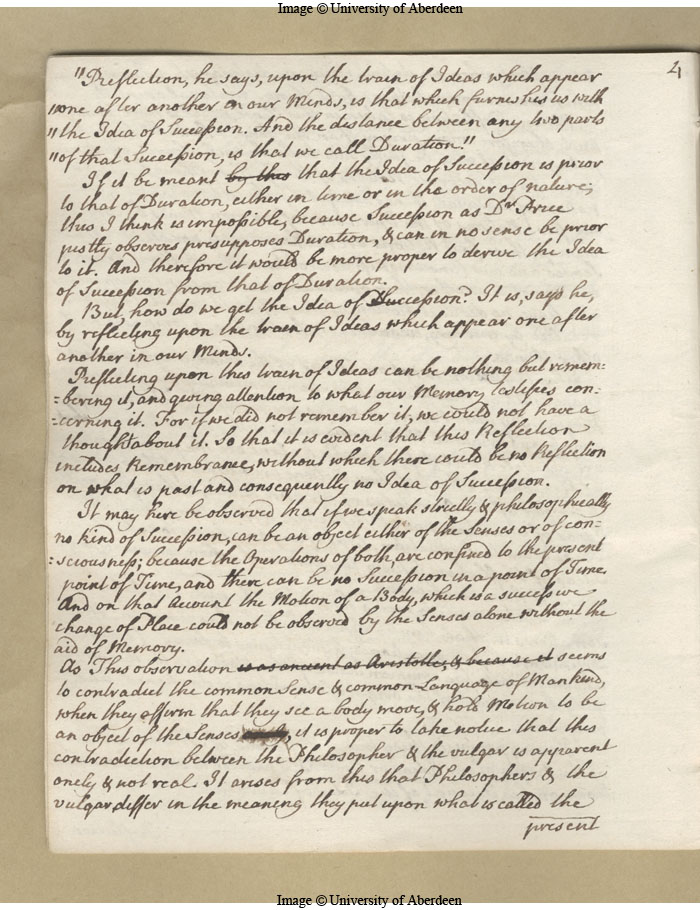 Image © University of Aberdeen
4
"Reflection, he says, upon the train of Ideas which appear
"one after another in our Minds, is that which furnishes us with
"the Idea of Succession. And the distance between any two parts
"of that Succession, is that we call Duration."
If it be meant by this that the Idea of Succession is prior
to that of Duration, either in time or in the order of nature;
this I think is impossible, because Succession as Dr Price
justly observes presupposes Duration, & can in no sense be prior
to it. And therefore it would be more proper to derive the Idea
of Succession from that of Duration.
But, how do we get the Idea of Succession? It is, says he,
by reflecting upon the train of Ideas which appear one after
another in our Minds.
Reflecting upon this train of Ideas can be nothing but remem=
=bering it, and giving attention to what our Memory testifies con=
=cerning it. For if we did not remember it, we could not have a
thought about it. So that it is evident that this Reflection
includes Remembrance, without which there could be no Reflection
on what is past and consequently no Idea of Succession.
It may here be observed that if we speak strictly & philosophically
no kind of Succession, can be an object either of the Senses or of con=
=sciousness; because the Operations of both, are confined to the present
point of Time, and there can be no Succession in a point of Time.
And on that Account the Motion of a Body, which is a successive
change of Place could not be observed by the Senses alone without the
aid of Memory.
As This observation is as ancient as Aristotle, & because it seems
to contradict the common Sense & common Language of Mankind,
when they affirm that they see a body move, & hold Motion to be
an object of the Senses, it is proper to take notice that this
contradiction between the Philosopher & the vulgar is apparent
onely & not real. It arises from this that Philosophers & the
vulgar differ in the meaning they put upon what is called the
present
Image © University of Aberdeen